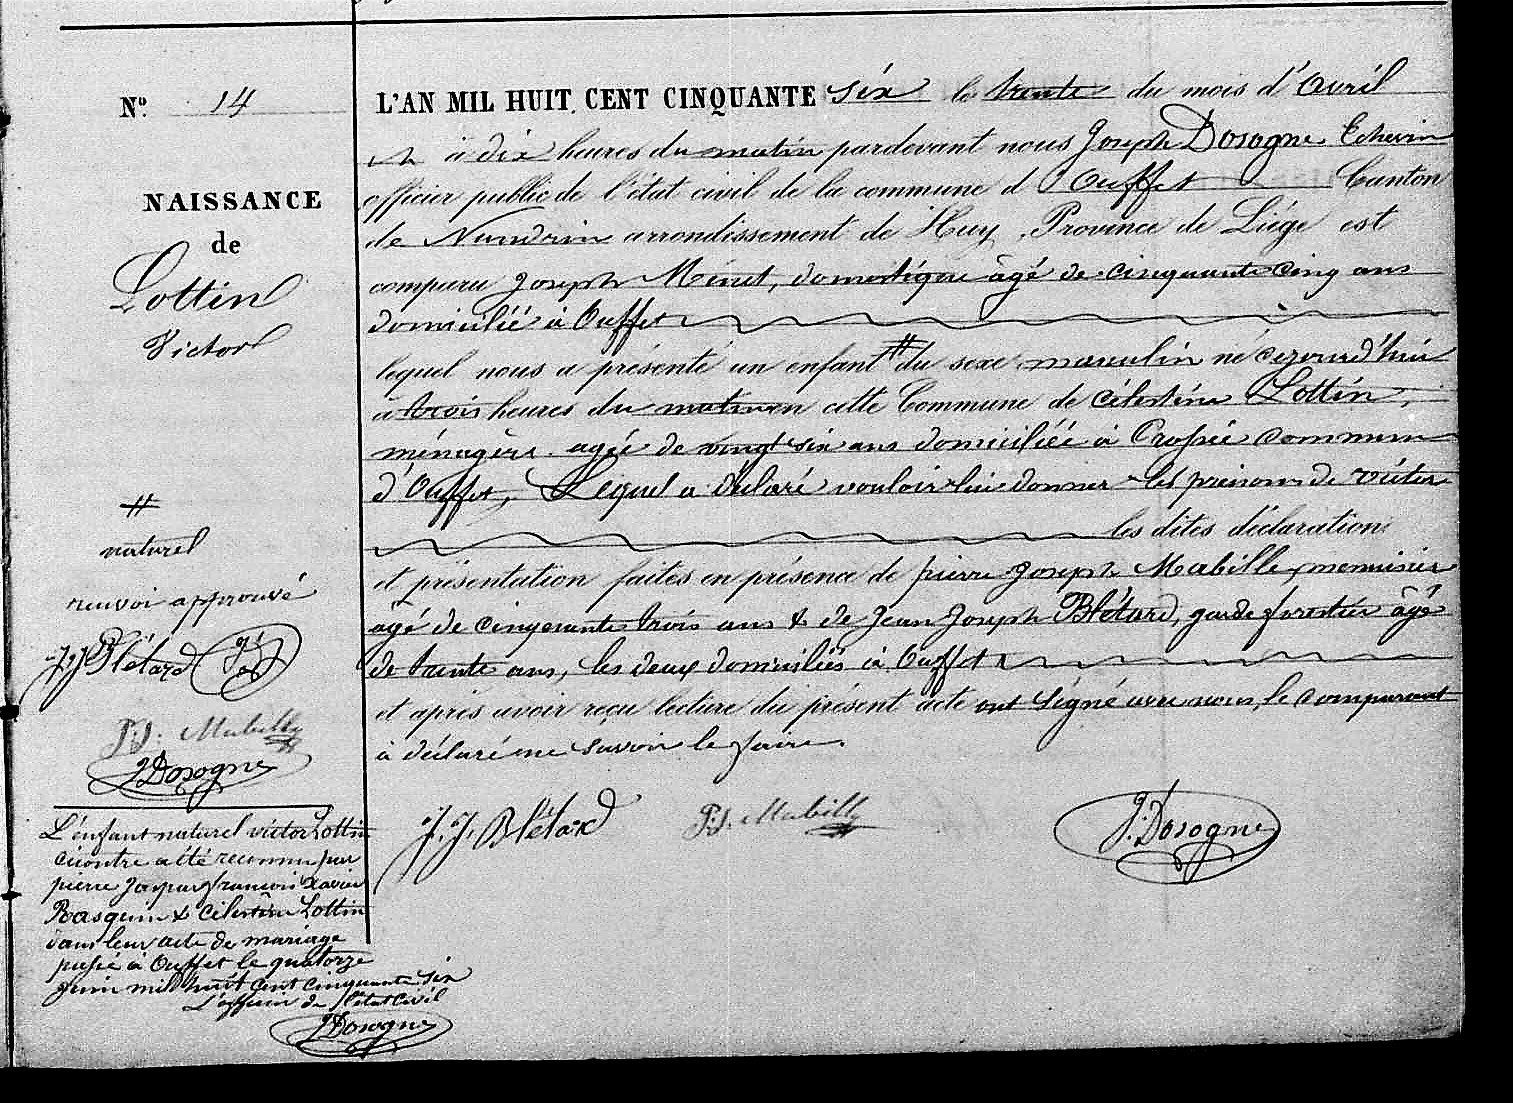 N.º 14
NAISSANCE
de
Lottin
Victor
#
naturel
renvoi approuvé
J. J. Blétard
P. J. Mabille
J Dosogne
L'enfant naturel victor Lottin
cicontre a été reconnu par
pierre Jaspar françois Xavier
Rasquin & Célestine Lottin
dans leur acte de mariage
passé à Ouffet le quatorze
juin mil huit cent cinquante six
L'officier de l'état civil
J Dosogne
L'AN MIL HUIT CENT CINQUANTE six le trente du mois d'avril
à dix heures du matin pardevant nous Joseph Dosogne, Echevin
officier public de l'état civil de la commune d'Ouffet Canton
de Nandrin arrondissement de Huy, Province de Liége est
comparu Joseph Minet, domestique âgé de cinquante cinq ans
domicilié à Ouffet
lequel nous a présenté un enfant # du sexe masculin né cejourd'hui
à trois heures du matin en cette Commune de célestine Lottin,
ménagère agée de vingt six ans domiciliée à commune
d'Ouffet, Lequel a déclaré vouloir lui donner les prénoms de victor
les dites déclaration
et présentation faites en présence de pierre Joseph Mabille, menuisier
agé de cinquante trois ans & de Jean Joseph Blétard, garde forestier âgé
de trente ans, les deux domiciliés à Ouffet
et après avoir reçu lecture du présent acte ont signé avec nous, le comparant
à déclaré ne savoir le faire.
J. J. Blétard P. J. Mabille J. Dosogne